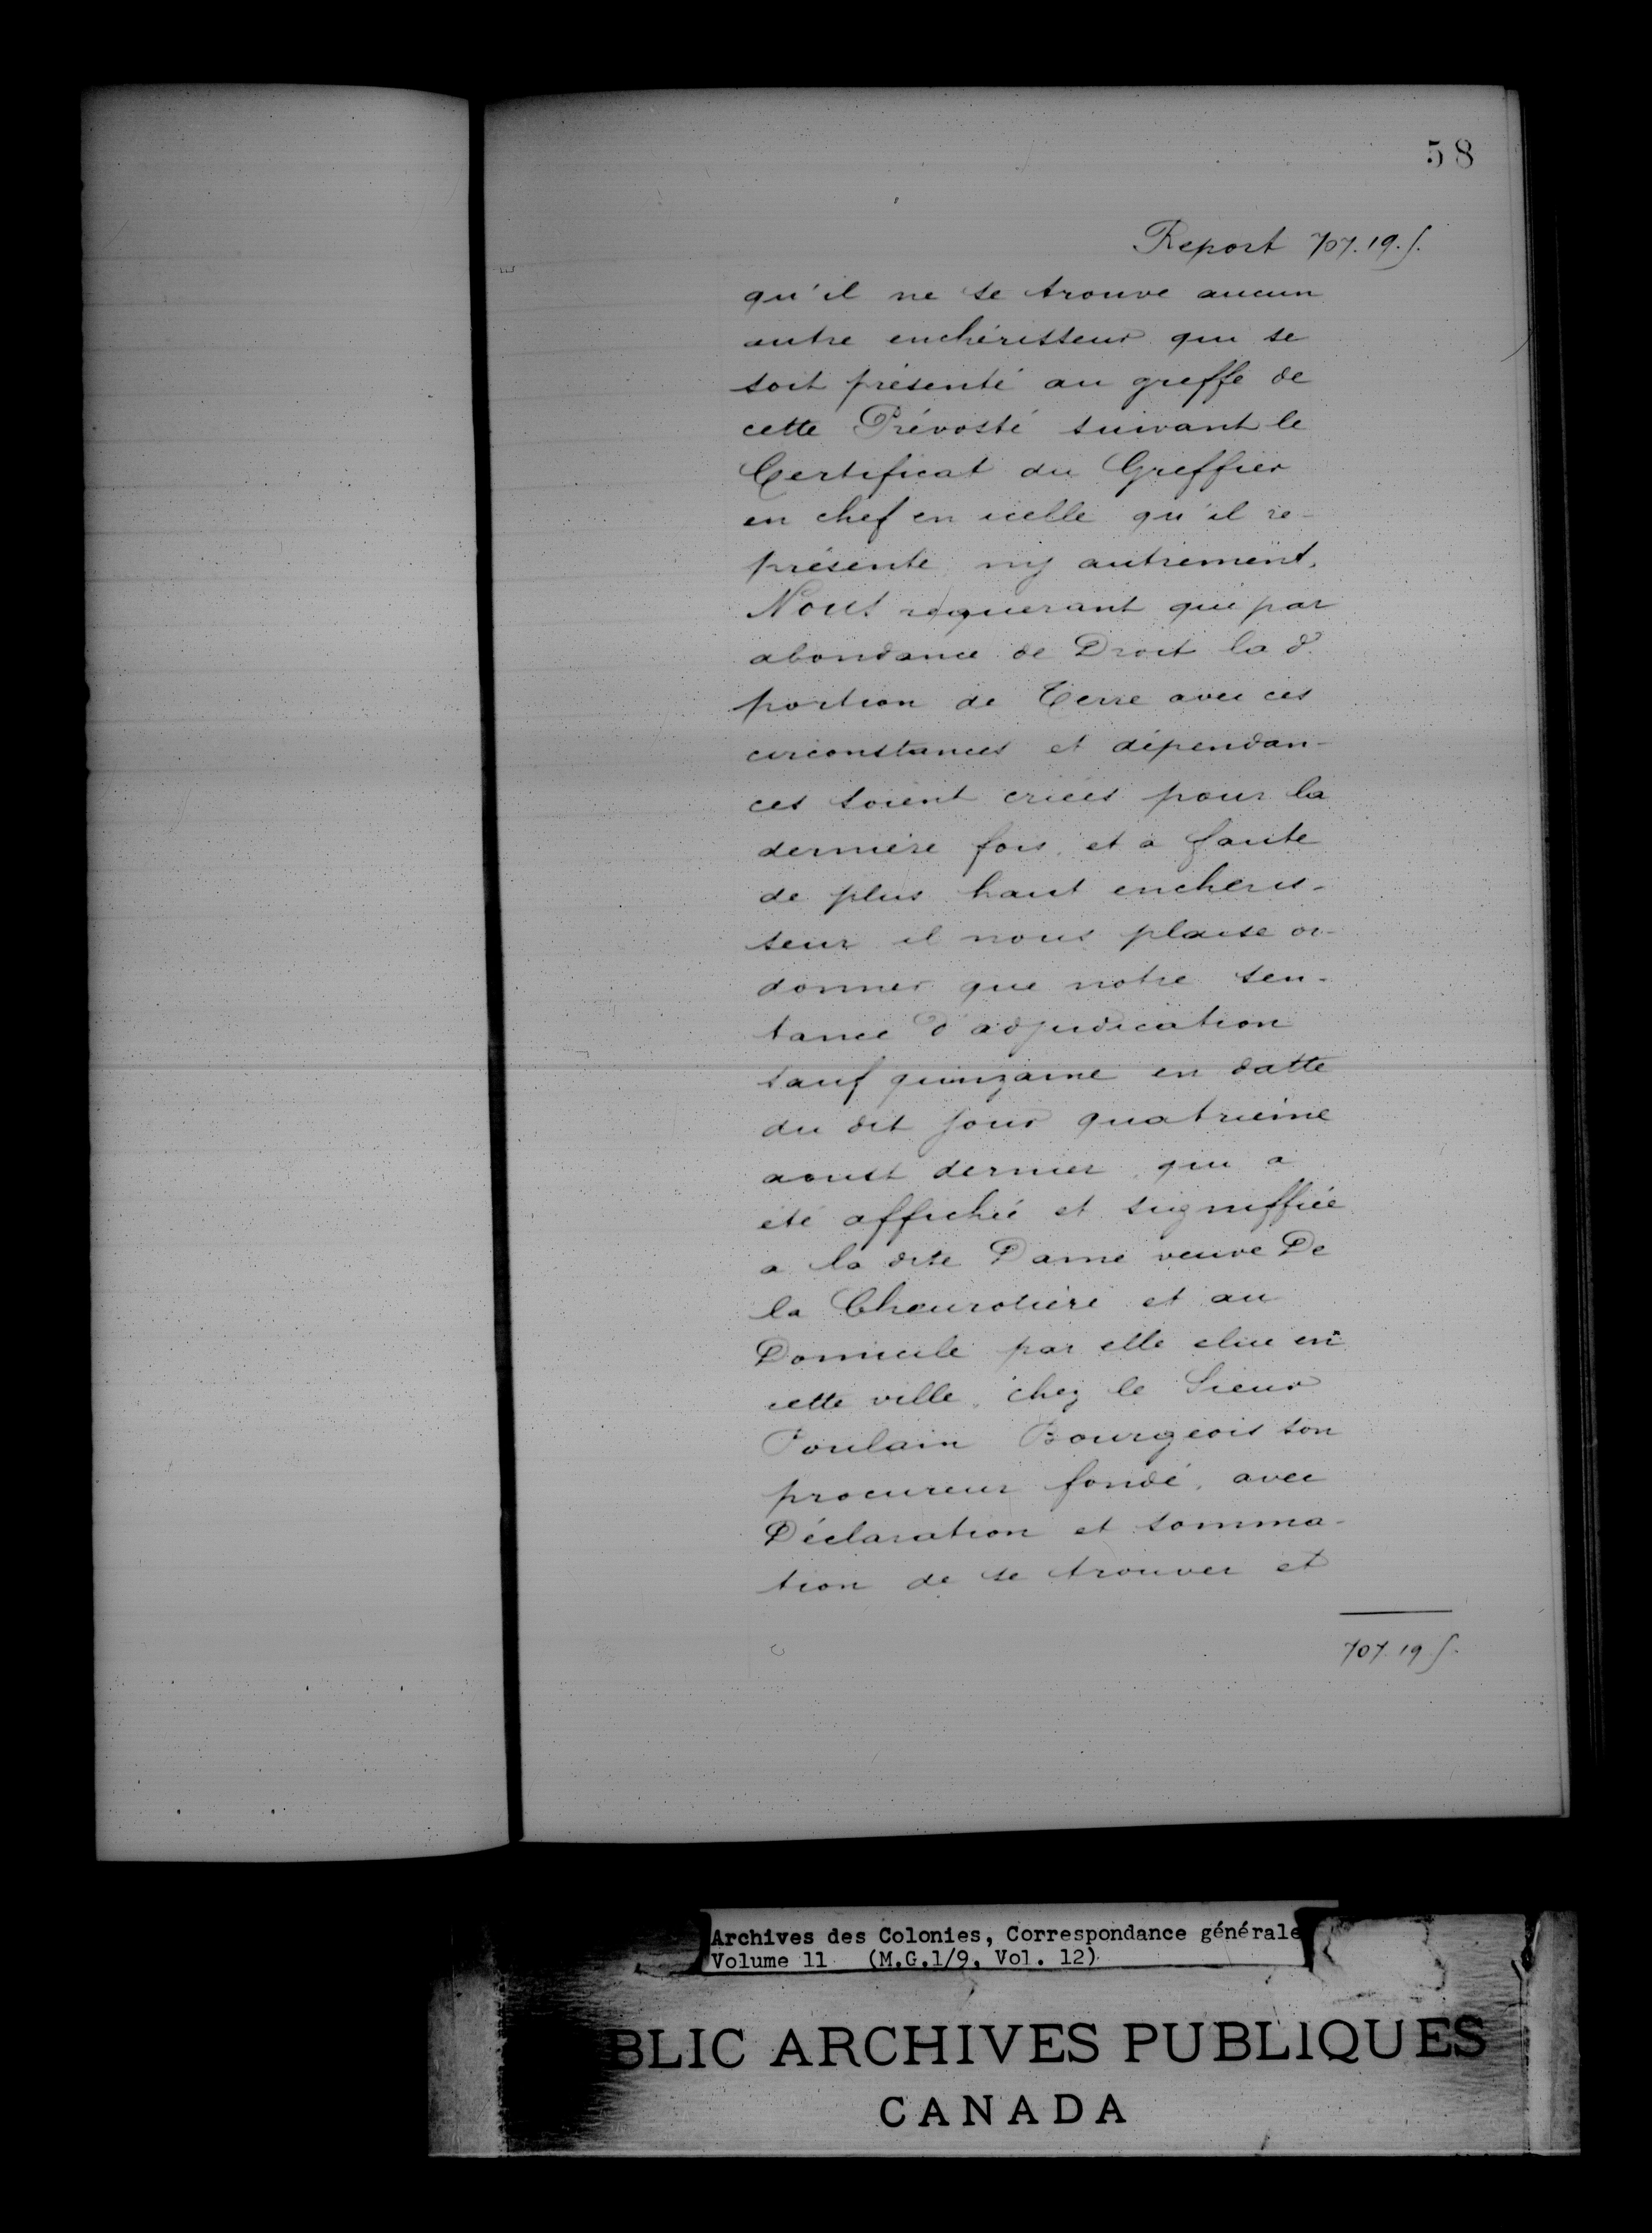 58
Report 707. 19. s.
qu'il ne se trouve aucun
autre enchérisseur qui se
soit présenté au greffe de
cette Prévosté suivant le
Certificat du Greffier
en chef en icelle qu'il re-
présente ny autrement.
Nous requerant que par
abondance de Droit la d.
portion de Terre avec ces
circonstances et dépendan-
ces soient criées pour la
dernière fois, et a faute
de plus haut encheris-
seur il nous plaise or-
donner que notre sen-
tance d'adjudication
sauf quinzaine en datte
du dit jour quatrieme
aoust dernier, qui a
été affichée et signiffiée
a la dite Dame veuve De
la Cheurotière et au
Domicile par elle elue en
cette ville, chez le Sieur
Poulain Bourgeois son
procureur fondé, avec
Déclaration et somma-
tion de se trouver et
707. 19 s.
Archives des Colonies, Correspondance générale
Volume 11 (M.G.1/9, Vol. 12)
BLIC ARCHIVES PUBLIQUES
CANADA